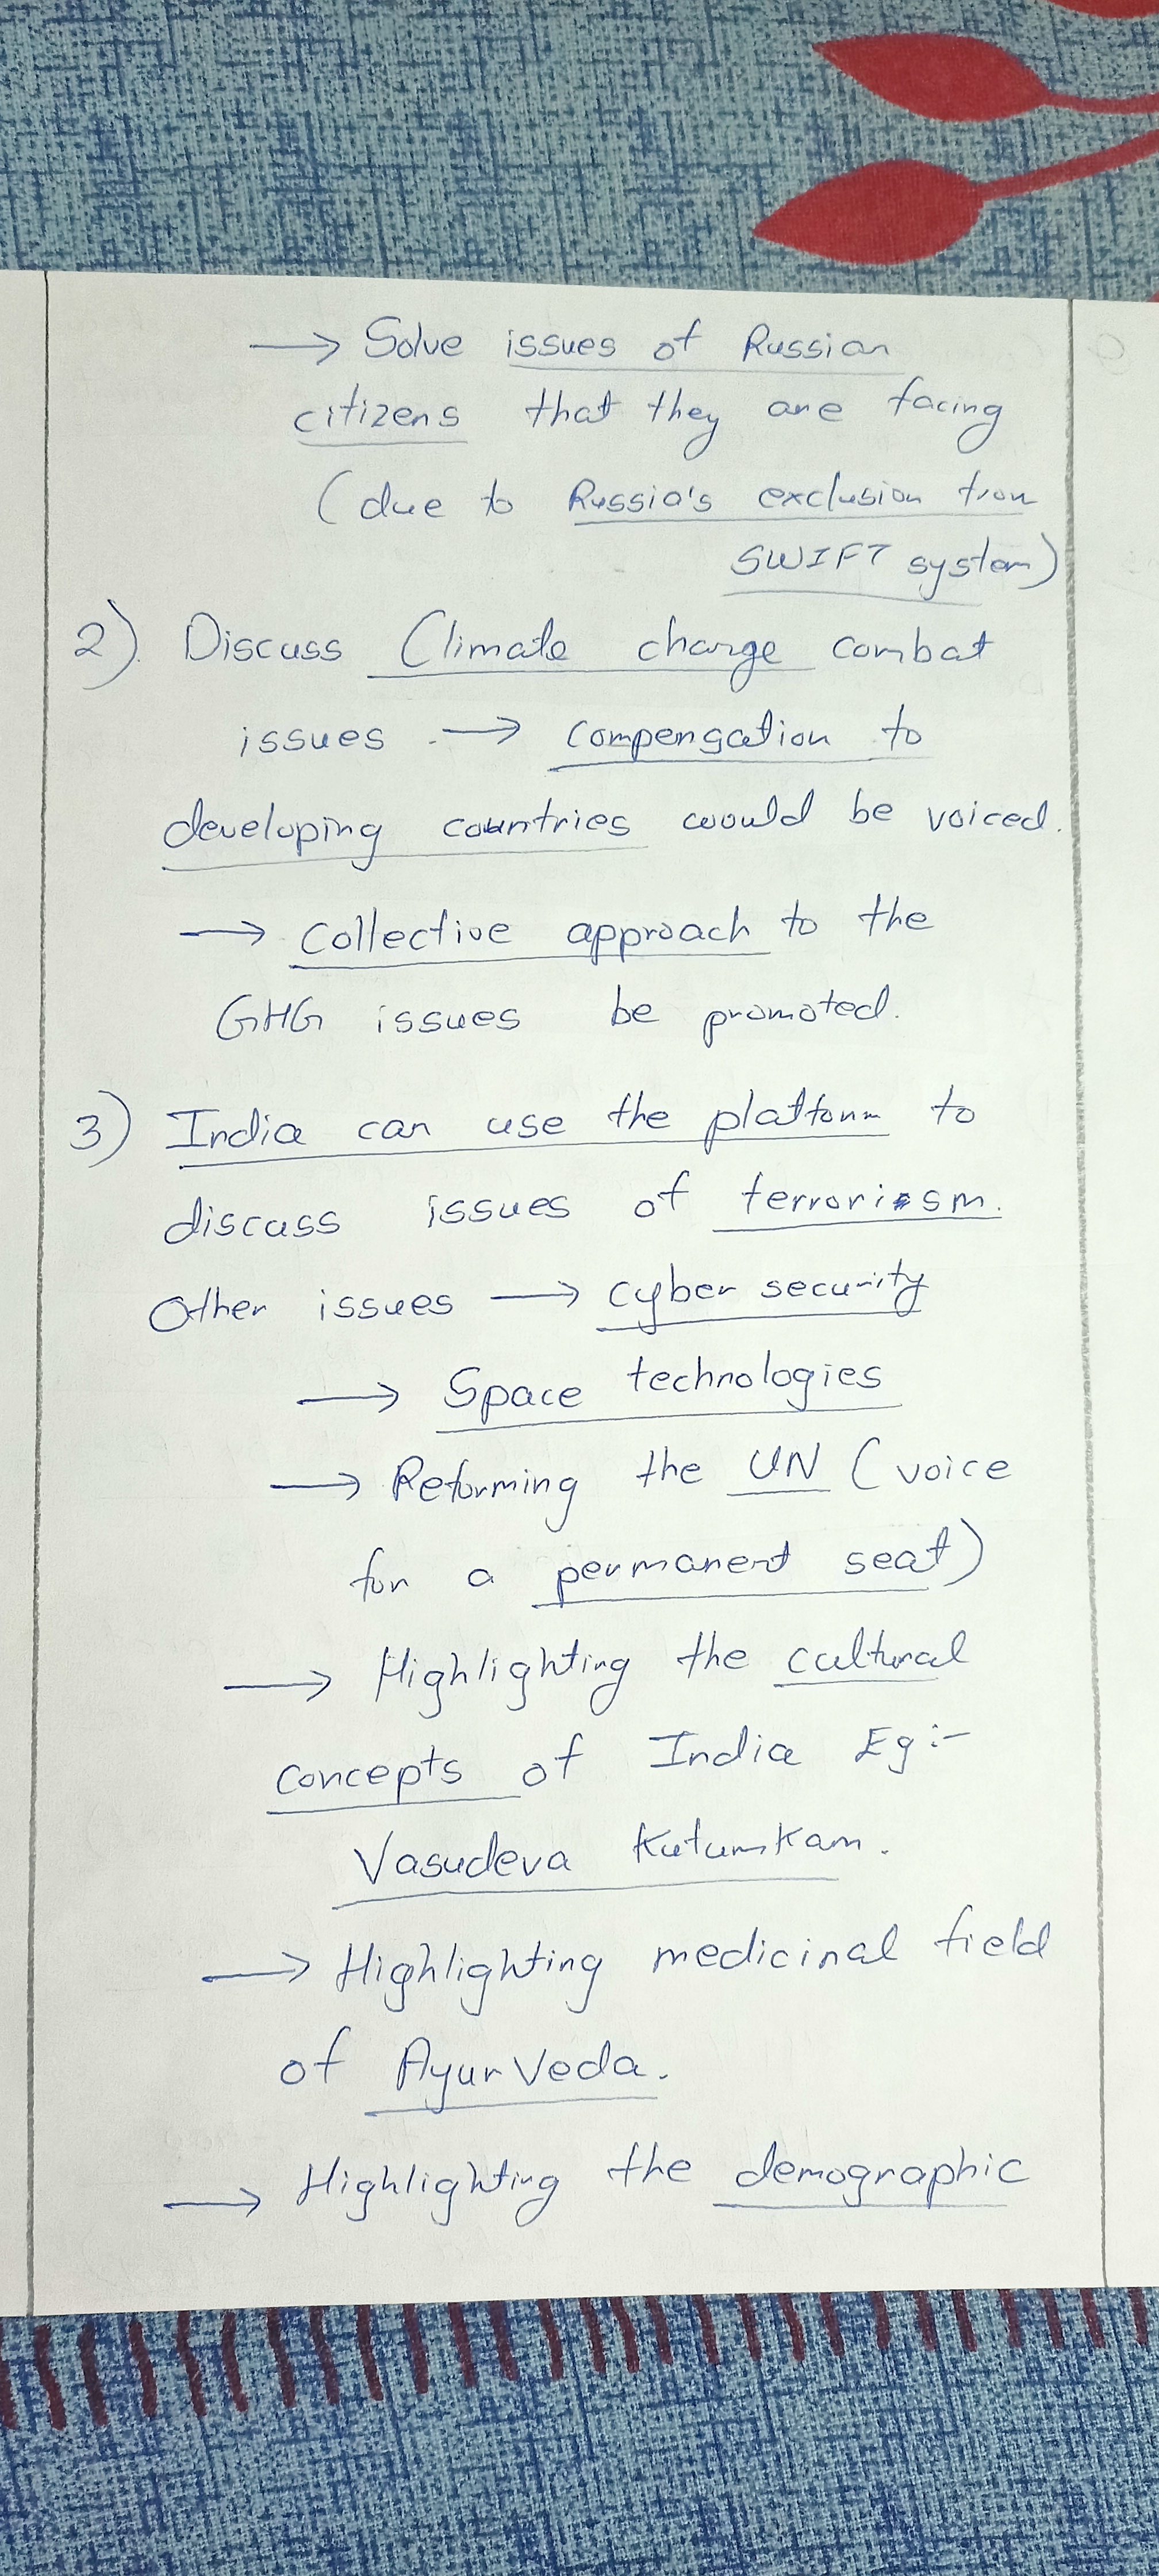 → Solve issues of Russian
citizens that they are facing
(due to Russia's exclusion from
SWIFT system)
2) Discuss Climate change combat
issues → compensation to
developing countries would be voiced.
→ Collective approach to the
GHG issues be promoted.
3) India can use the platform to
discuss issues of terrorism.
Other issues → cyber security
→ Space technologies
→ Reforming the UN (voice
for a permanent seat)
→ Highlighting the cultural
concepts of India Eg:-
Vasudeva Kutumkam.
→ Highlighting medicinal field
of AyurVeda.
→ Highlighting the demographic